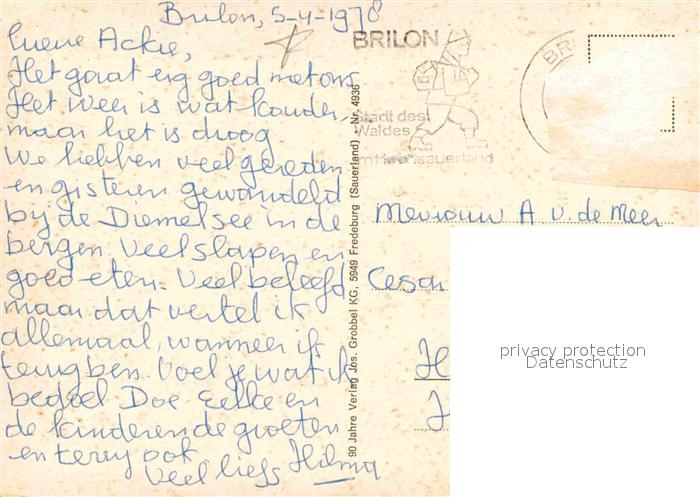 Brilon, 5-4-1978
Lieve Ackie,
Het gaat erg goed met ons.
Het weer is wat kouder,
maar het is droog.
We hebben veel gereden
en gisteren gewandeld
bij de Diemelsee in de
bergen. Veel slapen en
goed eten. Veel beleefd
maar dat vertel ik
allemaal, wanneer ik
terug ben. Voel je wat ik
bedoel. Doe Eelke en
de kinderen de groeten
en terry ook.
Veel liefs Hilma
90 Jahre Verlag Jos. Grobbel KG, 5949 Fredeburg (Sauerland) - Nr. 4936
BRILON
Stadt des
Waldes
im Hochsauerland
BRI
Mevrouw A. v. de Meer
Cesar
H
privacy protection
Datenschutz